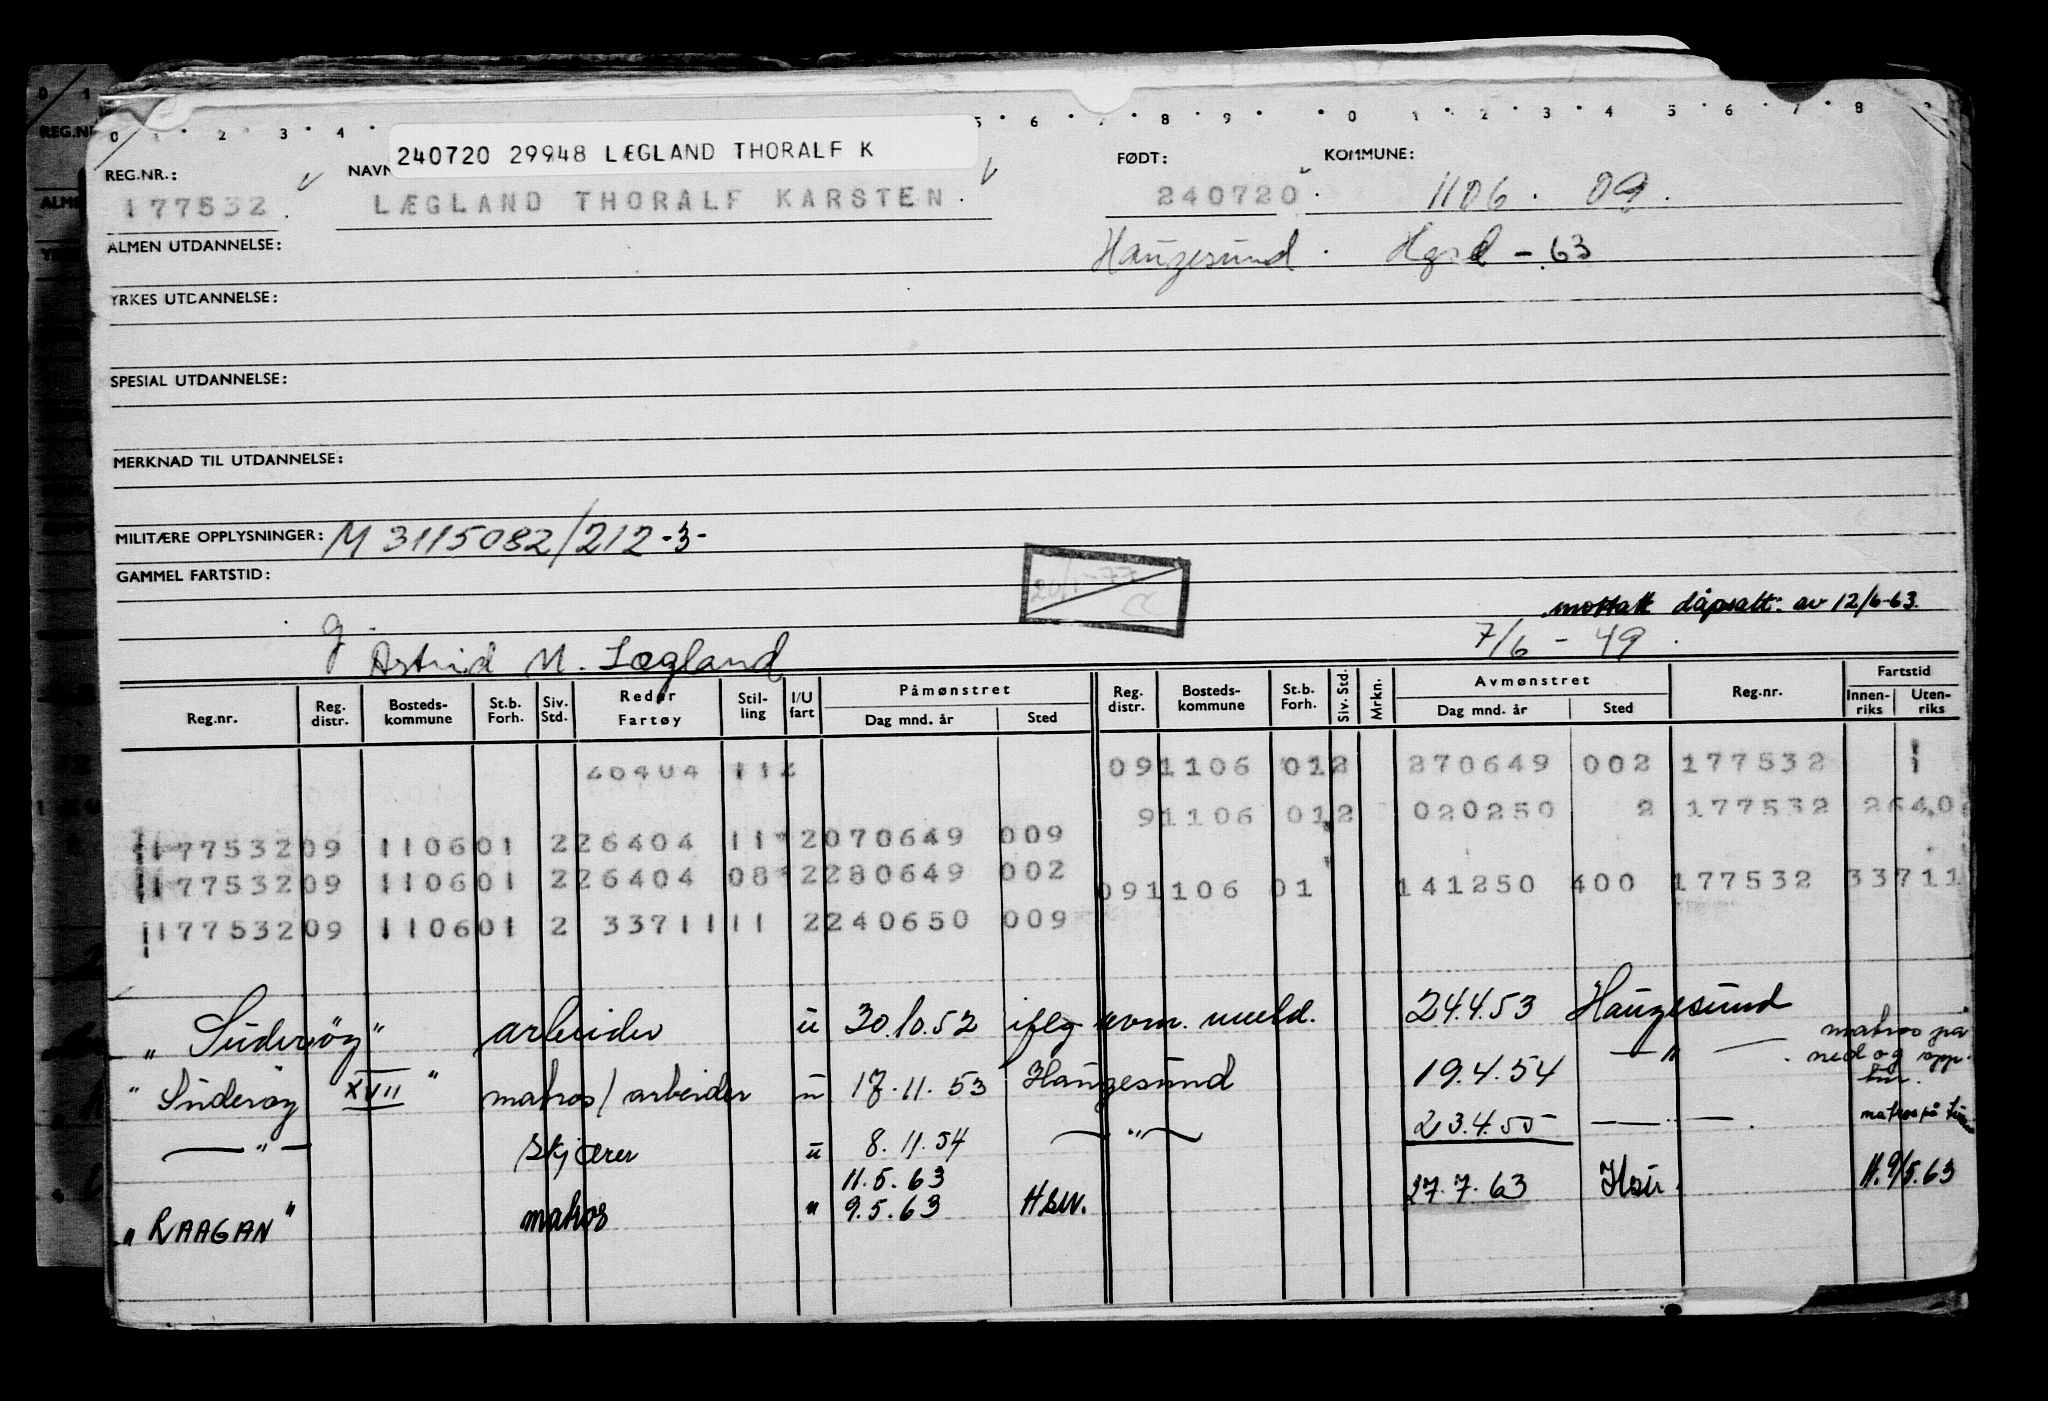 240720 29948 LÆGLAND THORALF K
REG.NR.: NAVN FØDT: KOMMUNE:
177532 LÆGLAND THORALF KARSTEN 240720 1106. 09.
ALMEN UTDANNELSE: Haugesund. Hgsd - 63
YRKES UTDANNELSE:
SPESIAL UTDANNELSE:
MERKNAD TIL UTDANNELSE:
MILITÆRE OPPLYSNINGER: M 3115082/212-3-
GAMMEL FARTSTID:
20/1-77
mottatt dåpsatt. av 12/6-63.
g. Astrid M. Lægland 7/6 - 49.
Reg.nr. Reg. distr. Bosteds- kommune St.b. Forh. Siv. Std. Reder Fartøy Stil- ling I/U fart Påmønstret Dag mnd. år Sted Reg. distr. Bosteds- kommune St.b. Forh. Siv. Std. Mrkn. Avmønstret Dag mnd. år Sted Reg.nr. Fartstid Innen- riks Uten- riks
26404 112 091106 012 270649 002 177532
91106 012 020250 2 177532 2640
17753209 110601 226404 11 2070649 009
17753209 110601 226404 08 2280649 002 091106 01 141250 400 177532 33711
17753209 110601 2 33711 11 2240650 009
"Süderöy" arbeider u 30.10.52 iflg avm. meld. 24.4.53 Haugesund
"Süderöy XVII" matros/arbeider u 17.11.53 Haugesund 19.4.54 — " — matros på ned og opp. tur.
— " — skjærer u 8.11.54 — " — 23.4.55 — " — matros på
11.5.63
"RAAGAN" matros " 9.5.63 Hsur. 27.7.63 Hsur. 11.9/5.63